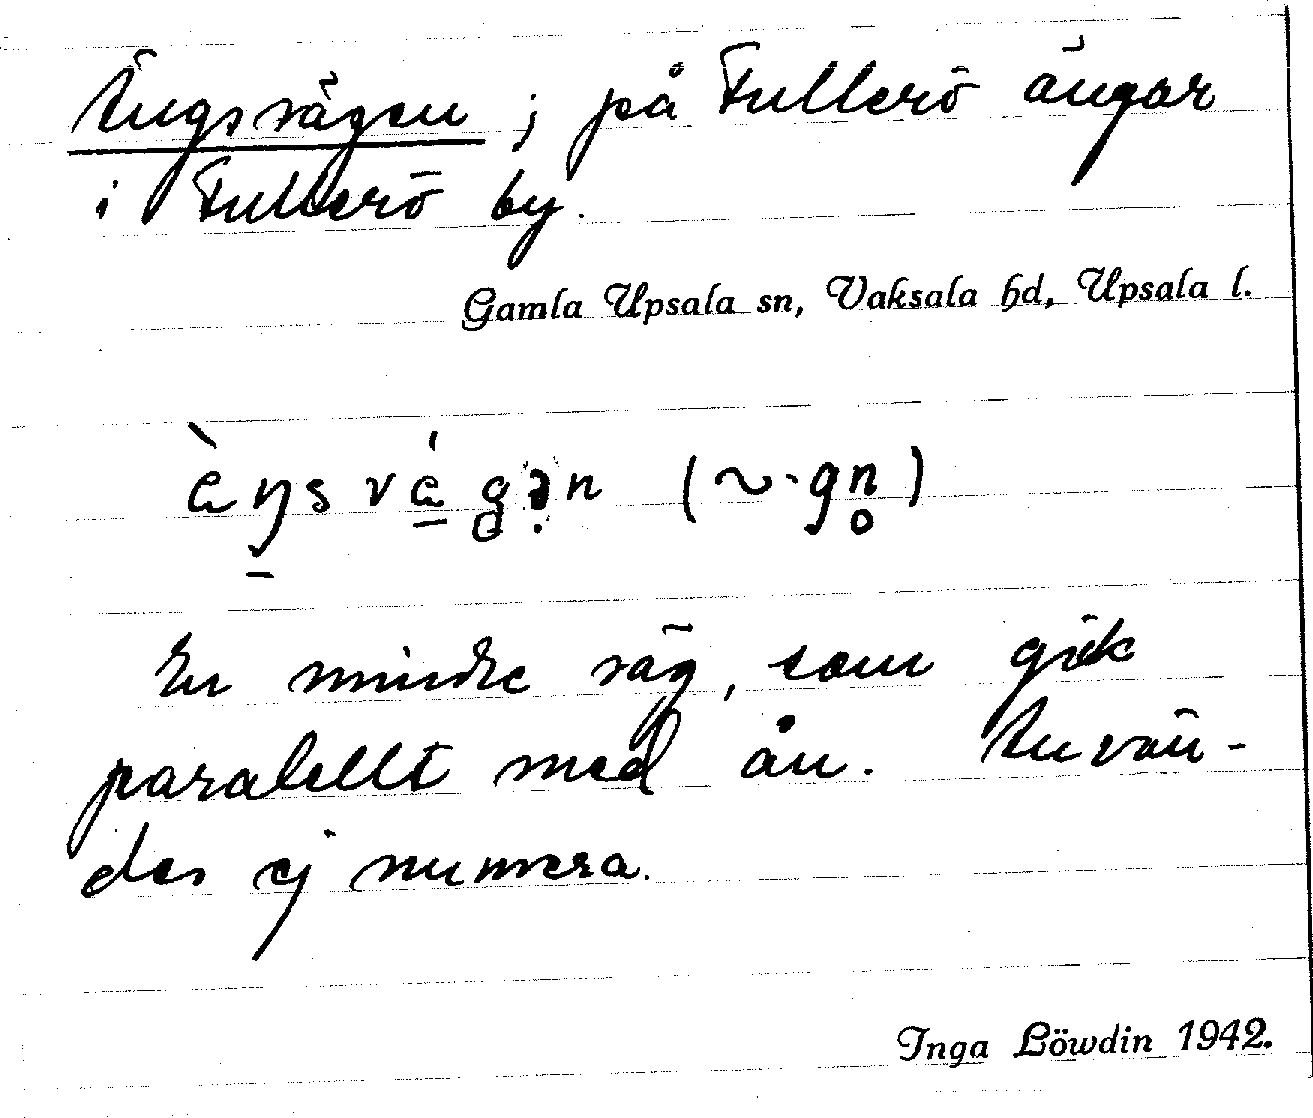 Ängsvägen; på Fullerö ängar
i Fullerö by.
Gamla Upsala sn, Vaksala hd, Upsala l.
En mindre väg, som gick
paralellt med ån. Använ-
des ej numera.
Inga Löwdin 1942.